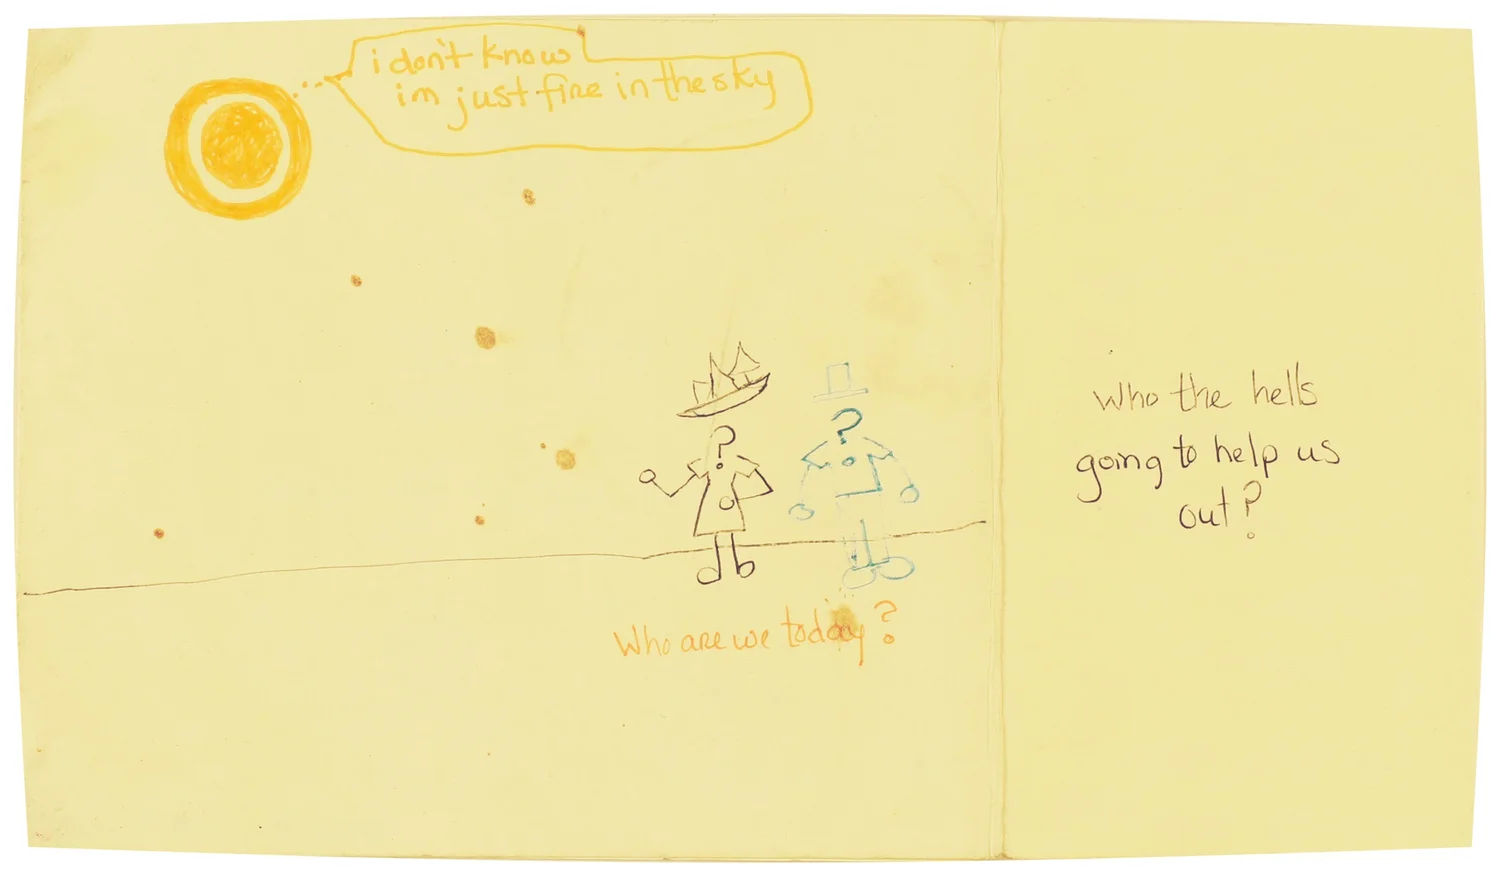 i don't know
im just fire in the sky
?
?
Who are we today?
Who the hells
going to help us
out?